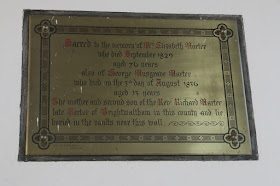 Sacred to the memory of Mrs Elizabeth Barter
who died September 1829
aged 76 years
also of George Musgrave Barter
who died on the 3rd day of August 1856
aged 74 years
The mother and second son of the Rev Richard Barter
late Rector of Brightwaltham in this county and lie
buried in the vaults near this wall